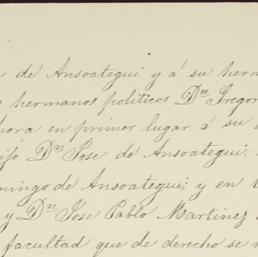 de Ansoategui y á su herm
hermanos politicos Dn Gregor
hora en primor lugar á su
ijo Dn Jose de Ansoategui.
mingo de Ansoategui; y en
y Dn Jose Pablo Martinez
facultad que de derecho se